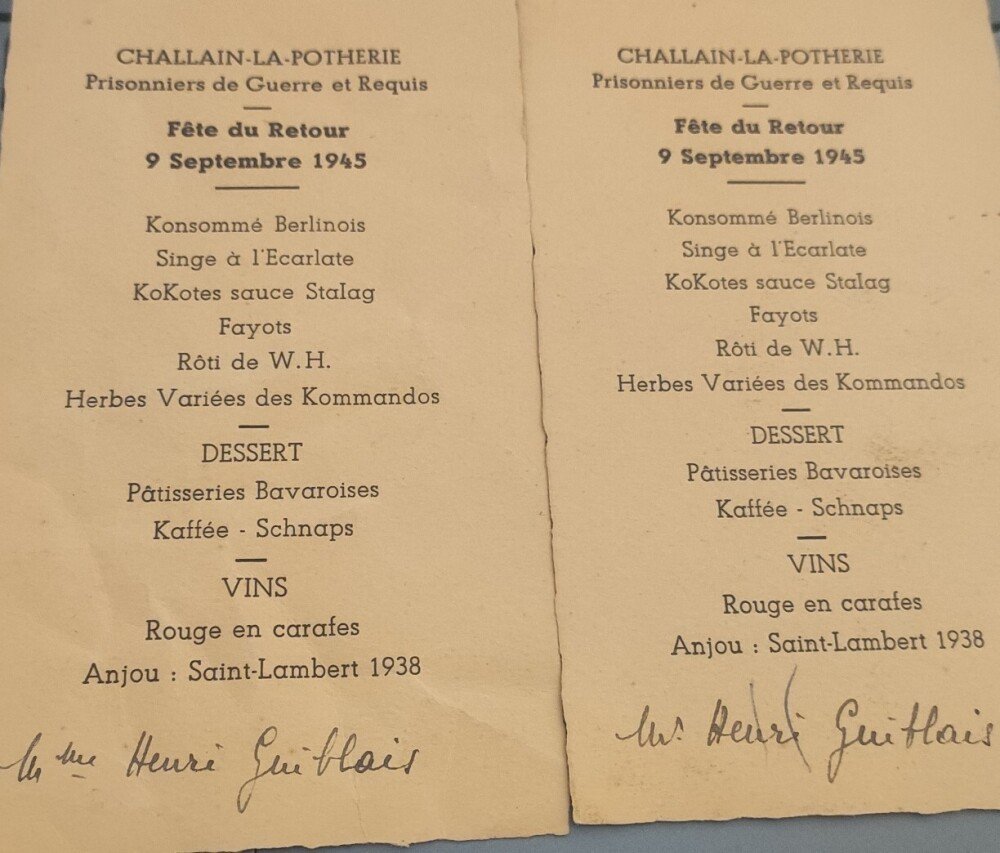 CHALLAIN-LA-POTHERIE
Prisonniers de Guerre et Requis
Fête du Retour
9 Septembre 1945
Konsommé Berlinois
Singe à l'Ecarlate
KoKotes sauce Stalag
Fayots
Rôti de W.H.
Herbes Variées des Kommandos
DESSERT
Pâtisseries Bavaroises
Kaffée - Schnaps
VINS
Rouge en carafes
Anjou : Saint-Lambert 1938
Mme Henri Guiblais
CHALLAIN-LA-POTHERIE
Prisonniers de Guerre et Requis
Fête du Retour
9 Septembre 1945
Konsommé Berlinois
Singe à l'Ecarlate
KoKotes sauce Stalag
Fayots
Rôti de W.H.
Herbes Variées des Kommandos
DESSERT
Pâtisseries Bavaroises
Kaffée - Schnaps
VINS
Rouge en carafes
Anjou : Saint-Lambert 1938
Mr. Henri Guiblais